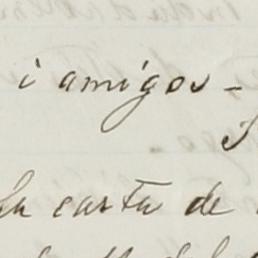 i amigos-
la carta de